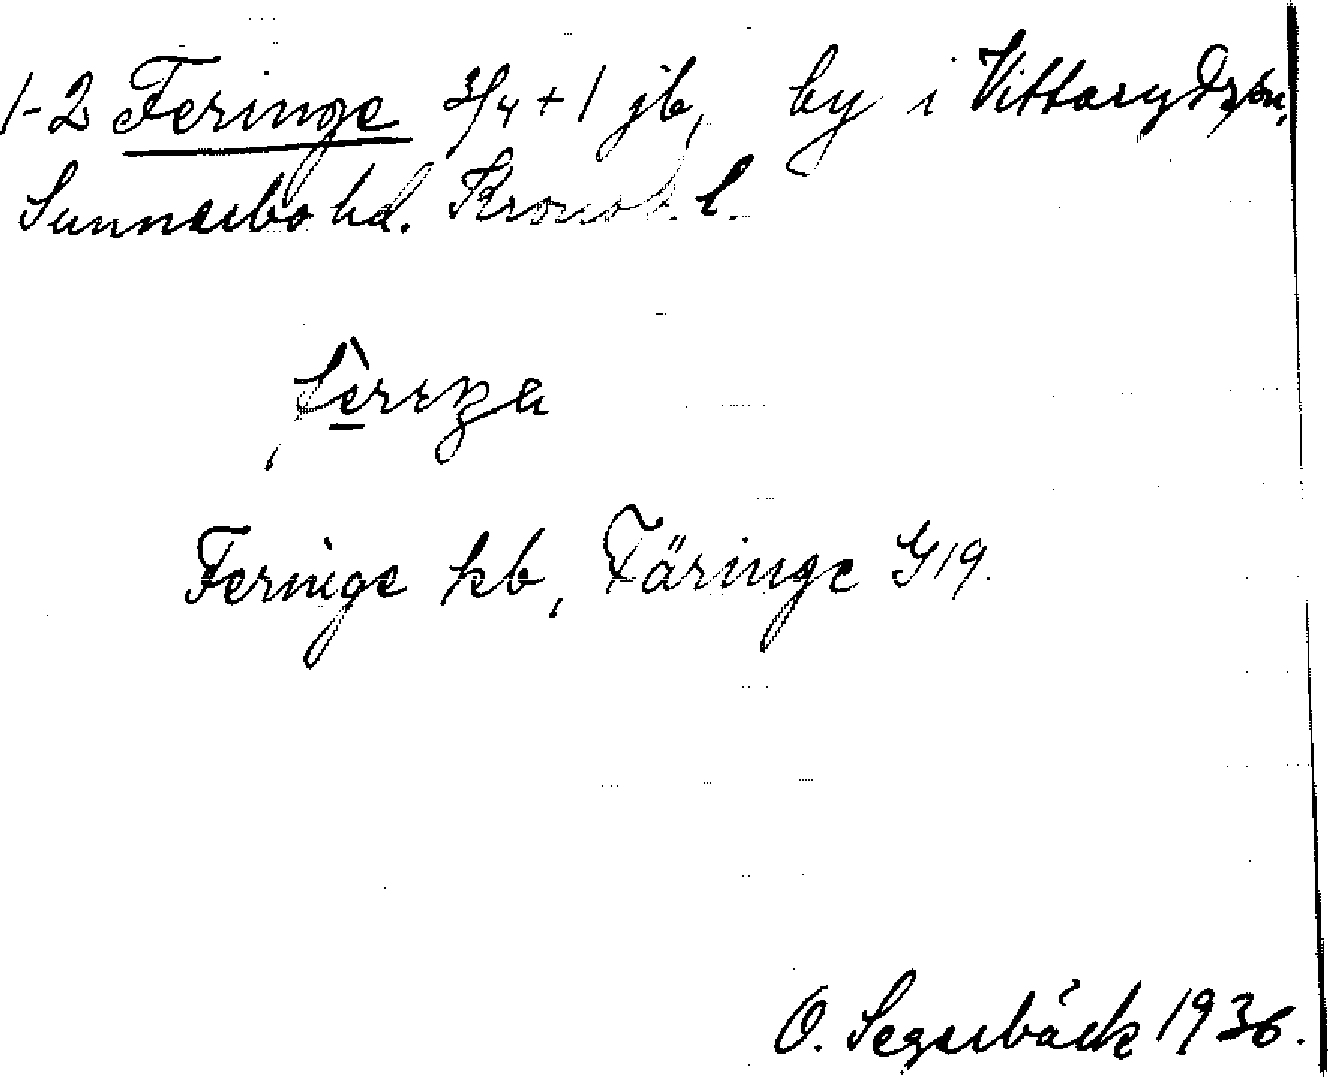 1-2 Feringe 3/4 + 1 jb, by i Vittaryd sn,
Sunnerbo hd. Kronob. l.
Feringe kb, Färinge G19.
O. Segerbäck 1936.